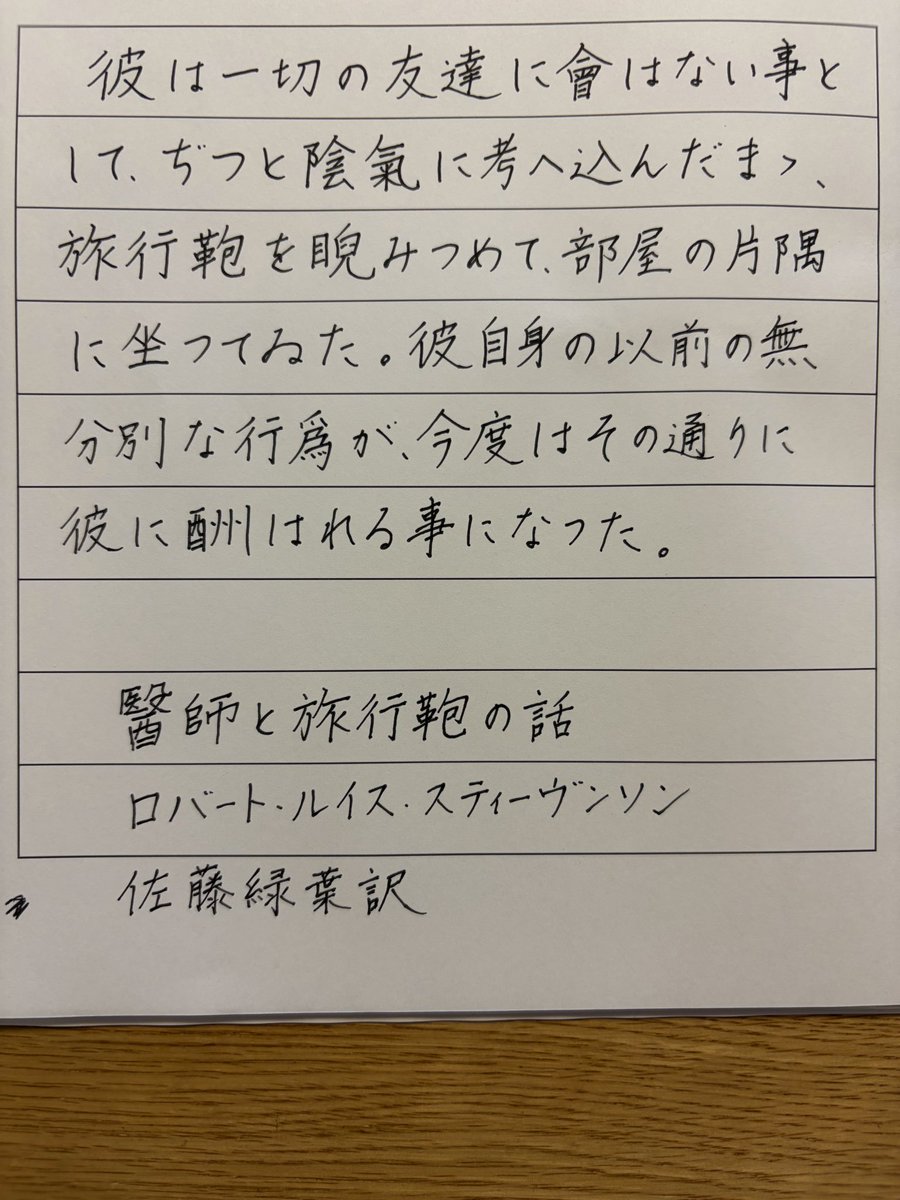 彼は一切の友達に會はない事と
して、ぢつと陰氣に考へ込んだまゝ、
旅行鞄を睨みつめて、部屋の片隅
に坐つてゐた。彼自身の以前の無
分別な行爲が、今度はその通りに
彼に酬はれる事になつた。
醫師と旅行鞄の話
ロバート・ルイス・スティーヴンソン
佐藤緑葉訳